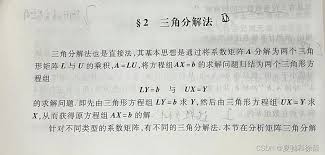 §2 三角分解法
三角分解法也是直接法,其基本思想是通过将系数矩阵 A 分解为两个三角
形矩阵 L 与 U 的乘积,A=LU,将方程组 AX=b 的求解问题归结为两个三角形方
程组
LY=b 与 UX=Y
的求解问题. 即先由三角形方程组 LY=b 求 Y,然后由三角形方程组 UX=Y 求
X,从而获得原方程组 AX=b 的解.
针对不同类型的系数矩阵,有不同的三角分解法. 本节在分析矩阵三角分解